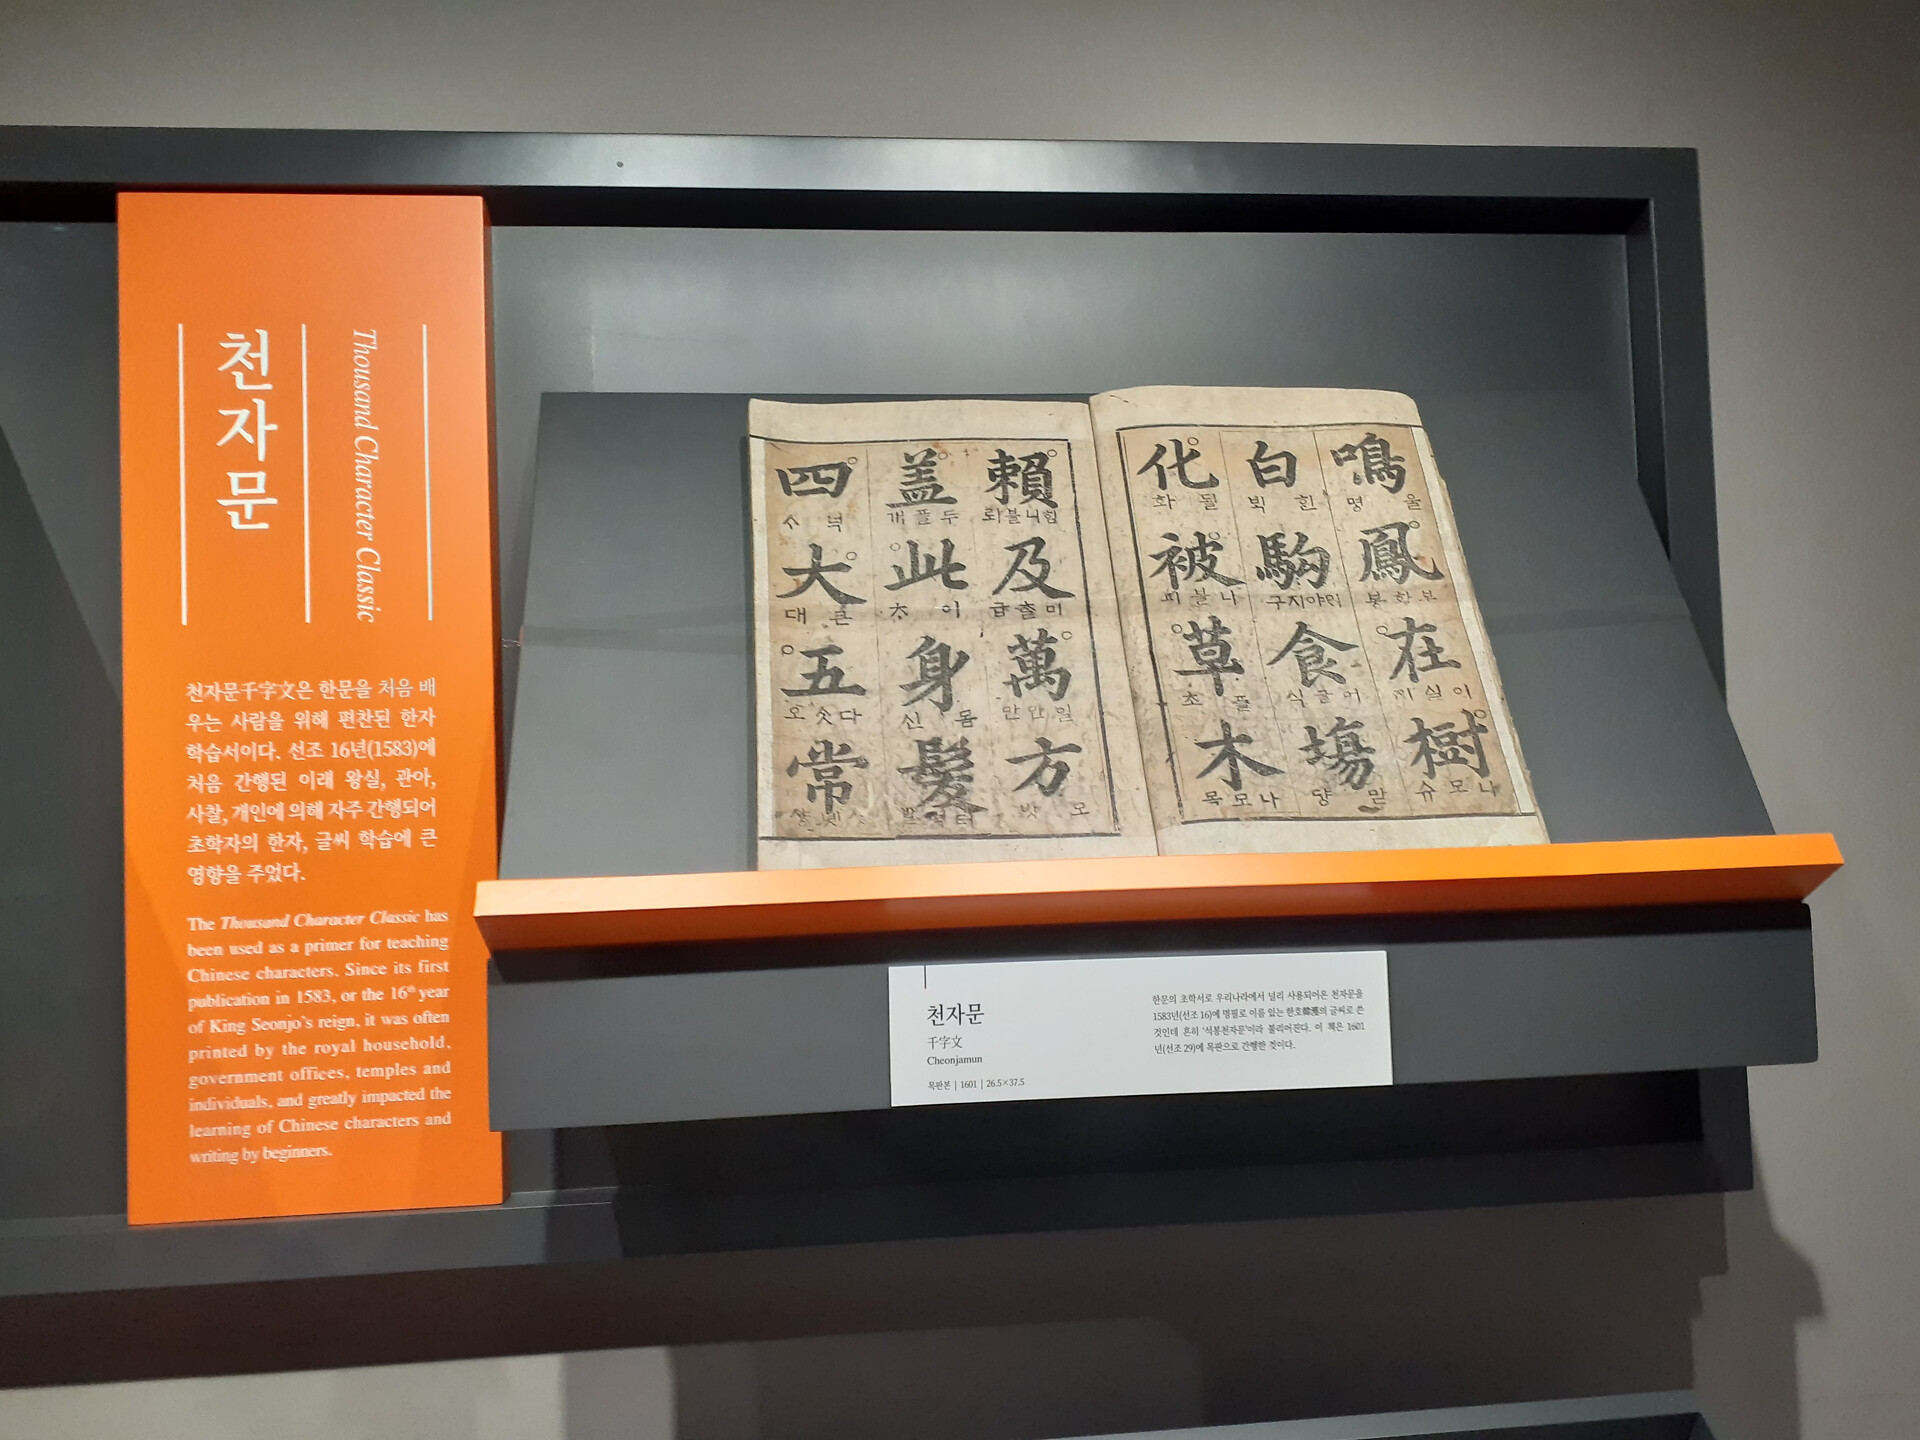 천자문
Thousand Character Classic
천자문千字文은 한문을 처음 배
우는 사람을 위해 편찬된 한자
학습서이다. 선조 16년(1583)에
처음 간행된 이래 왕실, 관아,
사찰, 개인에 의해 자주 간행되어
초학자의 한자, 글씨 학습에 큰
영향을 주었다.
The Thousand Character Classic has
been used as a primer for teaching
Chinese characters. Since its first
publication in 1583, or the 16th year
of King Seonjo's reign, it was often
printed by the royal household,
government offices, temples and
individuals, and greatly impacted the
learning of Chinese characters and
writing by beginners.
鳴
울 명
鳳
在
이실
樹
나모 슈
白
흰 ᄇᆡᆨ
駒
食
머글 식
場
맏 댱
化
될 화
被
니블 피
草
플 초
木
나모 목
賴
힘니블 뢰
及
미츨 급
萬
일만 만
方
모 방
盖
두플 개
此
이 ᄎᆞ
身
몸 신
髮
터럭 발
四
넉 ᄉᆞ
大
큰 대
五
다ᄉᆞᆺ 오
常
천자문
千字文
Cheonjamun
목판본 | 1601 | 26.5×37.5
한문의 초학서로 우리나라에서 널리 사용되어온 천자문을
1583년(선조 16)에 명필로 이름 있는 한호韓濩의 글씨로 쓴
것인데 흔히 '석봉천자문'이라 불리어진다. 이 책은 1601
년(선조 29)에 목판으로 간행한 것이다.